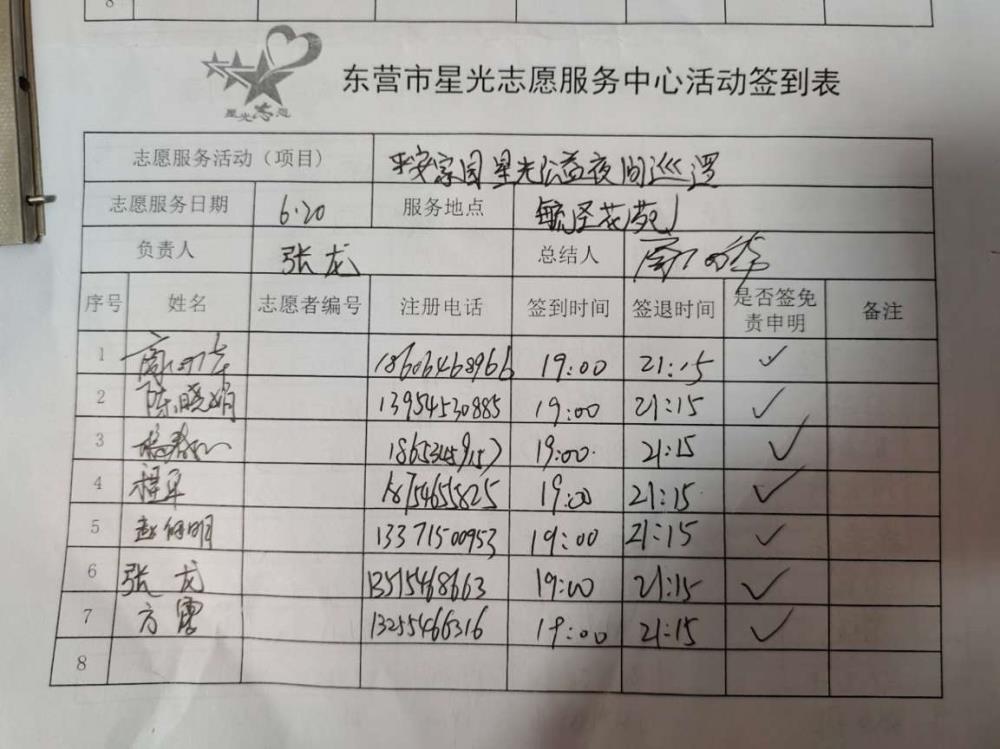 8
星光志愿
东营市星光志愿服务中心活动签到表
志愿服务活动（项目） 平安家园星光公益夜间巡逻
志愿服务日期 6.20 服务地点 花苑
负责人 张龙 总结人
序号 姓名 志愿者编号 注册电话 签到时间 签退时间 是否签免责申明 备注
1 18606468966 19:00 21:15 ✓
2 陈晓娟 13954530885 19:00 21:15 ✓
3 19:00 21:15 ✓
4 程军 18754655825 19:00 21:15 ✓
5 13371500953 19:00 21:15 ✓
6 张龙 13515468663 19:00 21:15 ✓
7 方雷 13255466316 19:00 21:15 ✓
8